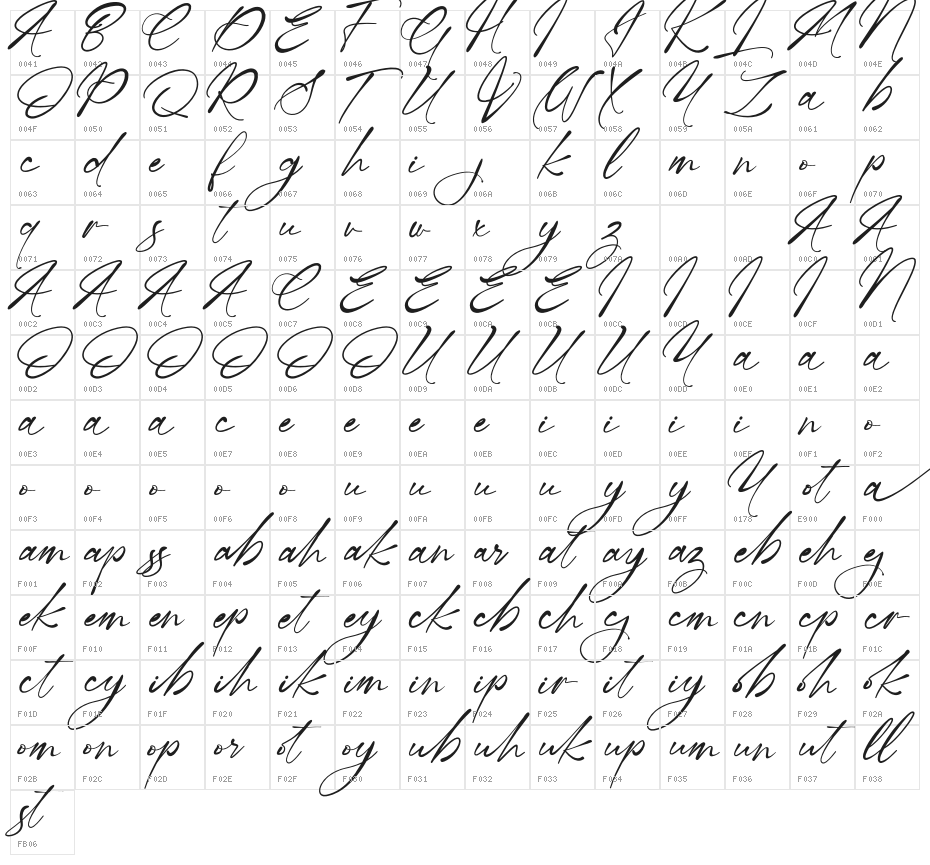 A B C D E F G H I J K L M N
0041 0042 0043 0044 0045 0046 0047 0048 0049 004A 004B 004C 004D 004E
O P Q R S T U V W X Y Z a b
004F 0050 0051 0052 0053 0054 0055 0056 0057 0058 0059 005A 0061 0062
c d e f g h i j k l m n o p
0063 0064 0065 0066 0067 0068 0069 006A 006B 006C 006D 006E 006F 0070
q r s t u v w x y z A A
0071 0072 0073 0074 0075 0076 0077 0078 0079 007A 00A0 00AD 00C0 00C1
A A A A C E E E E I I I I N
00C2 00C3 00C4 00C5 00C7 00C8 00C9 00CA 00CB 00CC 00CD 00CE 00CF 00D1
O O O O O O U U U U Y a a a
00D2 00D3 00D4 00D5 00D6 00D8 00D9 00DA 00DB 00DC 00DD 00E0 00E1 00E2
a a a c e e e e i i i i n o
00E3 00E4 00E5 00E7 00E8 00E9 00EA 00EB 00EC 00ED 00EE 00EF 00F1 00F2
o o o o o u u u u y y Y ot a
00F3 00F4 00F5 00F6 00F8 00F9 00FA 00FB 00FC 00FD 00FF 0178 E900 F000
am ap ss ab ah ak an ar at ay az eb eh g
F001 F002 F003 F004 F005 F006 F007 F008 F009 F00A F00B F00C F00D F00E
ek em en ep et ey ck cb ch cg cm cn cp cr
F00F F010 F011 F012 F013 F014 F015 F016 F017 F018 F019 F01A F01B F01C
ct cy ib ih ik im in ip ir it iy ob oh ok
F01D F01E F01F F020 F021 F022 F023 F024 F025 F026 F027 F028 F029 F02A
om on op or ot oy ub uh uk up um un ut ll
F02B F02C F02D F02E F02F F030 F031 F032 F033 F034 F035 F036 F037 F038
st
FB06